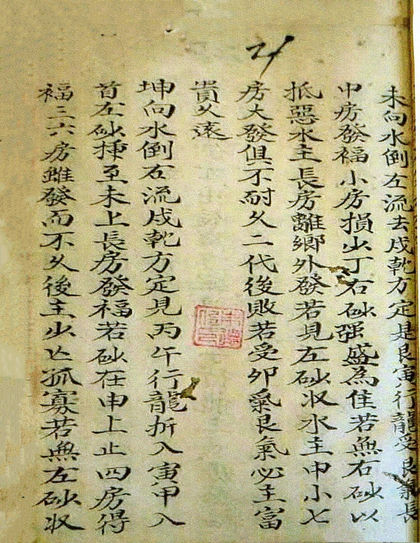 未向水倒左流去戌乾方定是艮寅行龍受艮氣長
中房發福小房損少丁右砂强盛為佳若無右砂以
抵惡水主長房離鄉外發若見左砂收水主中小七
房大發俱不耐久二代後敗若受卯氣艮氣必主富
貴久遠
坤向水倒右流戌乾方定見丙午行龍折入寅甲入
首左砂揷至未上長房發福若砂在申上止四房得
福三六房雖發而不久後主少亡孤寡若無左砂收